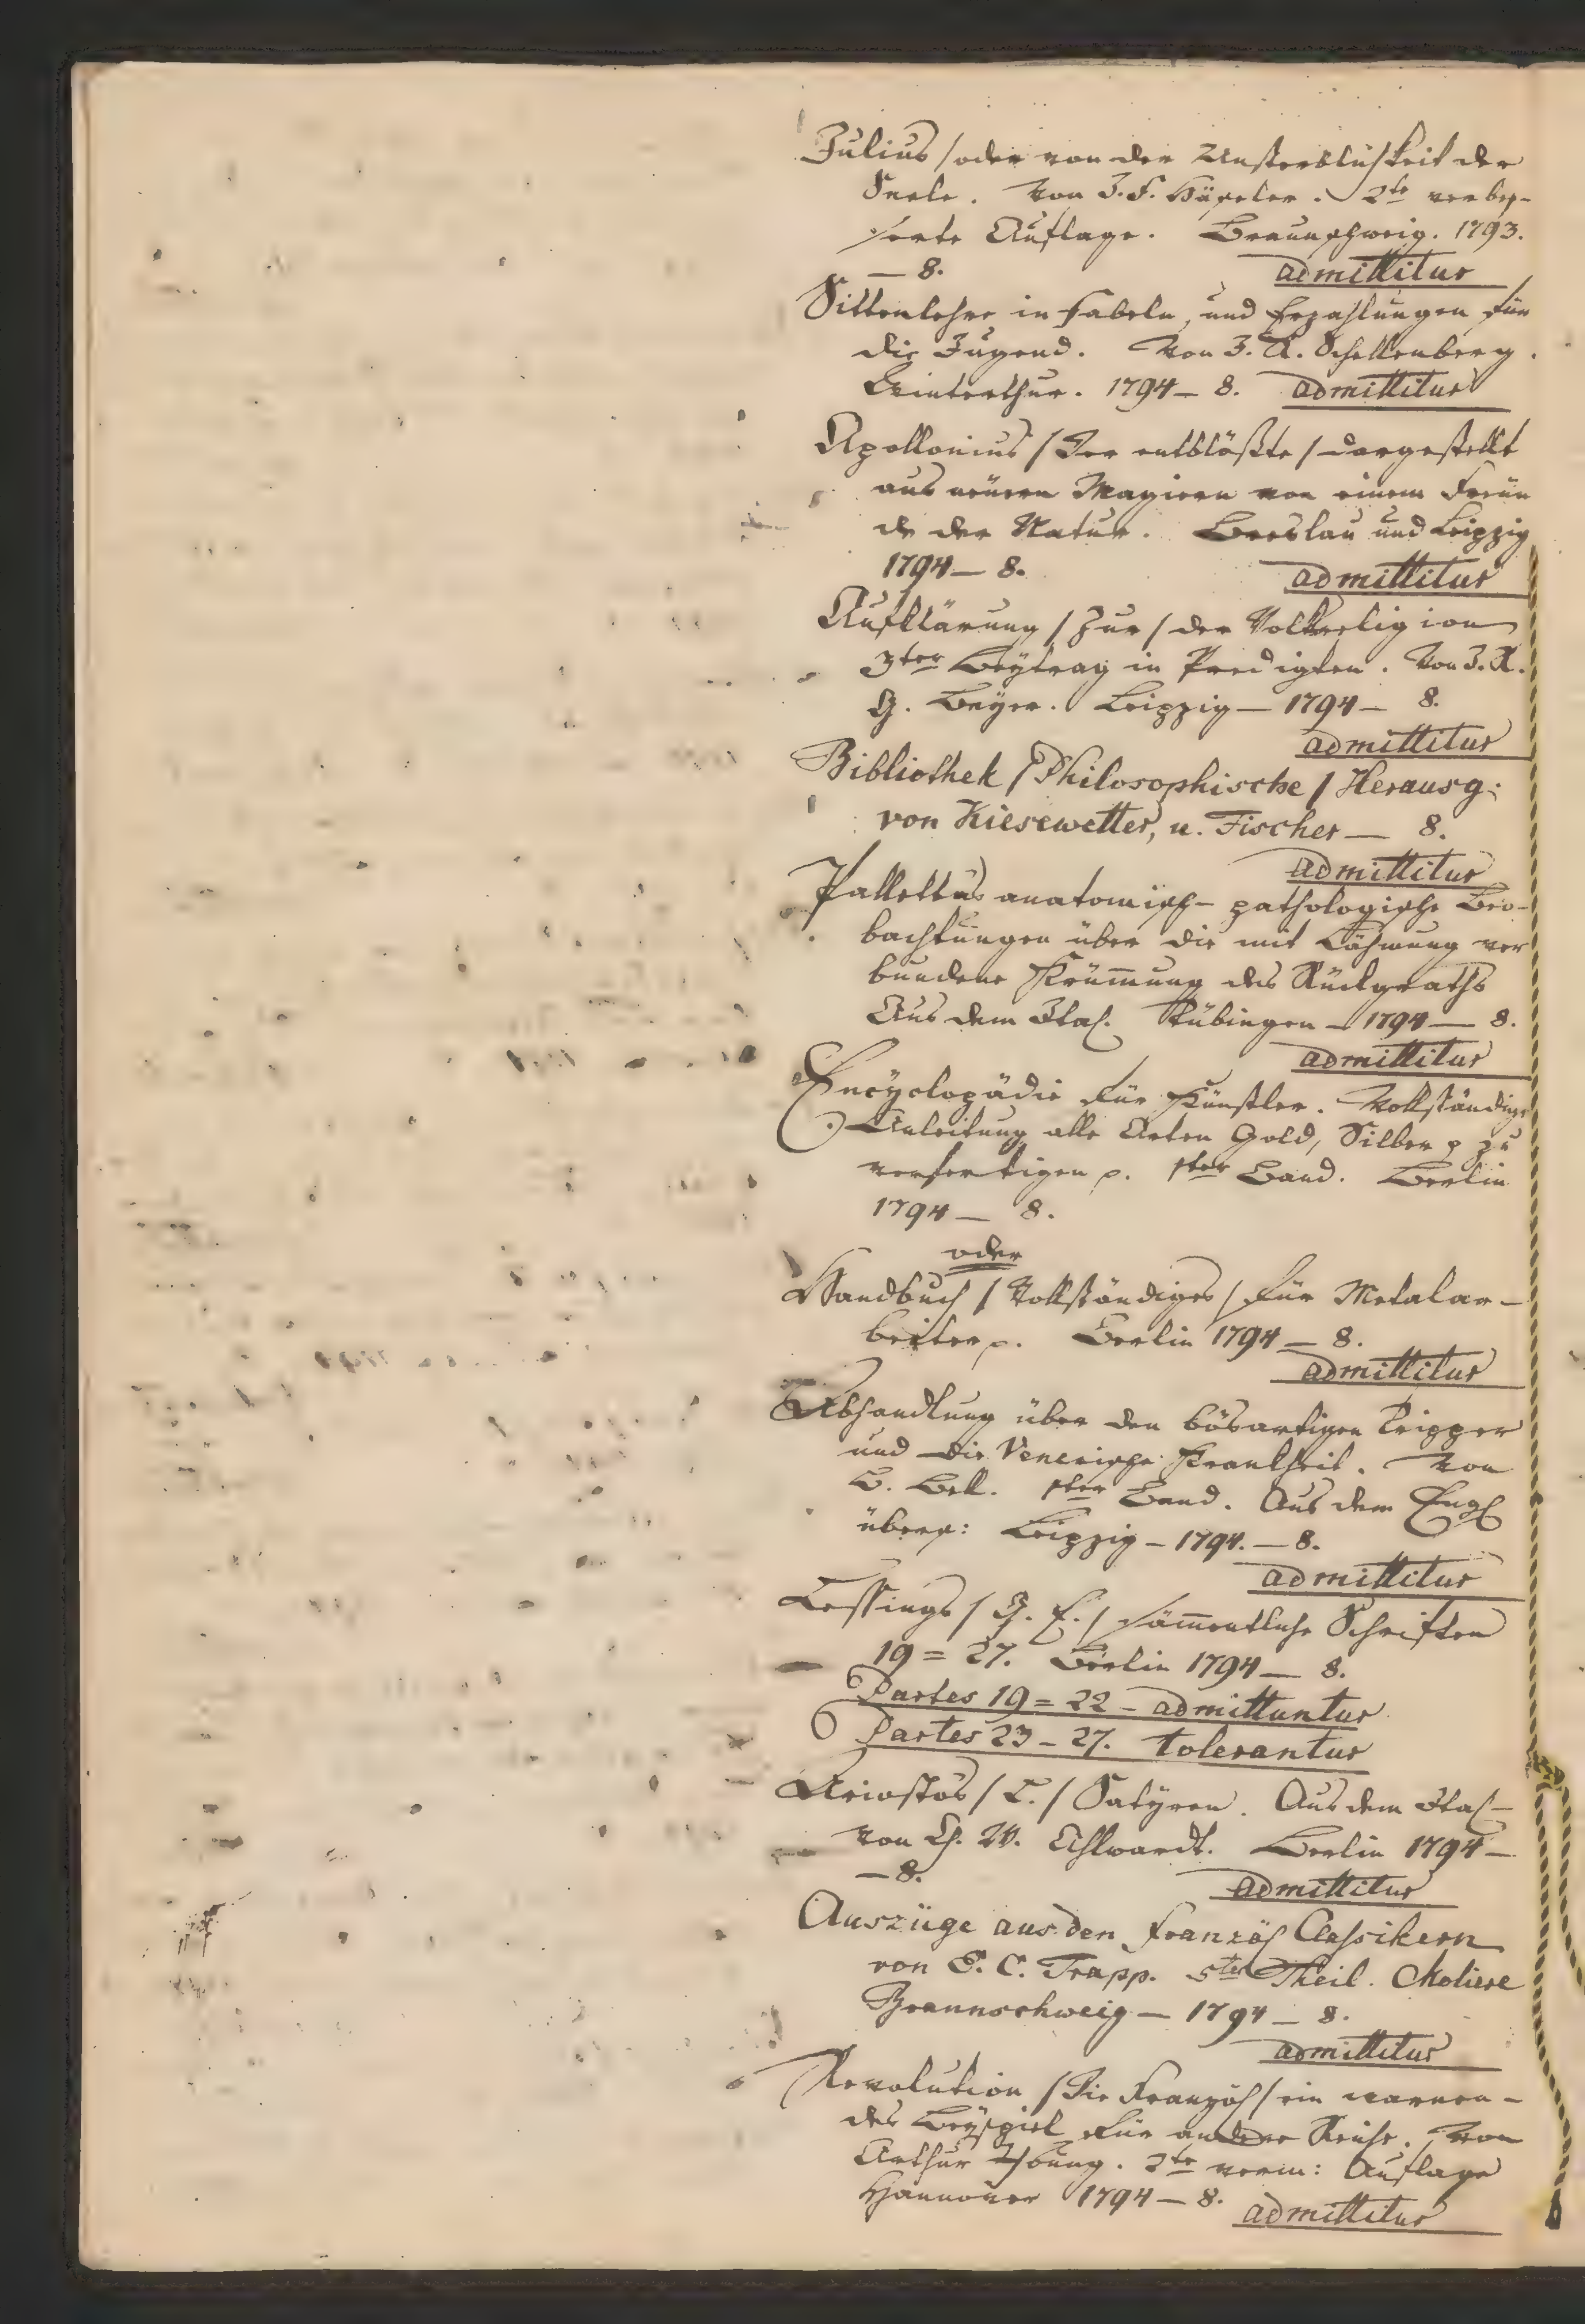 Julius / oder von der Unsterblichkeit der
Seele. Von J. F. Häseler. 2te verbes-
serte Auflage. Braunschweig. 1793.
— 8. admittitur
Sittenlehre in Fabeln, und Erzahlungen für
die Jugend. Von J. R. Schellenberg.
Winterthur. 1794 — 8. admittitur
Apollonius / Der entblößte / dargestellt
aus neüern Magiern von einem Freün
de der Natur. Breslau und Leipzig
1794 — 8. admittitur
Aufklärung / Zur / der Volksreligion
3ter Beÿtrag in Predigten. Von J. R.
G. Beÿer. Leipzig — 1794 — 8.
admittitur
Bibliothek / Philosophische / Herausg:
von Kiesewetter, u. Fischer — 8.
admittitur
Pallettas anatomisch-pathologische Beo-
bachtungen über die mit Lähmung ver
bundene Krüm̄ung des Rückgraths
Aus dem Ital. Tübingen — 1794 — 8.
admittitur
Encÿclopädie für Künstler. Vollständige
Anleitung alle Arten Gold, Silber p zu
verfertigen p. 1ter Band. Berlin
1794 — 8.
oder
Handbuch / Vollständiges / für Metalar-
beiter p. Berlin 1794 — 8.
admittitur
Abhandlung über den bösartigen Tripper
und die Venerische Krankheit. Von
B. Bell. 1ter Band. Aus dem Engl
übers: Leipzig — 1794. — 8.
admittitur
Lessings / G. E. / säm̄entliche Schriften
19 = 27. Berlin 1794 — 8.
Partes 19 = 22 — admittuntur
Partes 23 — 27. tolerantur
Ariostos / L. / Satÿren. Aus dem Ital-
von Ch. W. Ahlwardt. Berlin 1794 —
— 8. admittitur
Auszüge aus den Französ Classikern
von E. C. Trapp. 5ter Theil. Moliere
Braunschweig — 1794 — 8.
admittitur
Revolution / Die Französ / ein warnen-
des Beÿspiel für andere Reiche. Von
Arthur Young. 2te verm: Auflage
Hannover 1794 — 8. admittitur